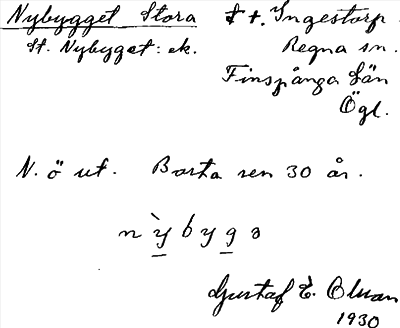 Nybygget Stora t. Ingestorp
St. Nybyget: ek. Regna sn.
Finspånga län
Ögl.
N. ö ut. Borta sen 30 år.
nỳbygə
Gustaf E. Olman
1930